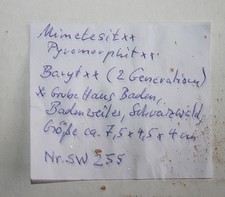 Mimetesit xx
Pyromorphit xx
Baryt xx (2 Generationen)
Grube Haus Baden,
Badenweiler, Schwarzwald
Größe ca. 7,5 x 4,5 x 4 cm
Nr. SW 255